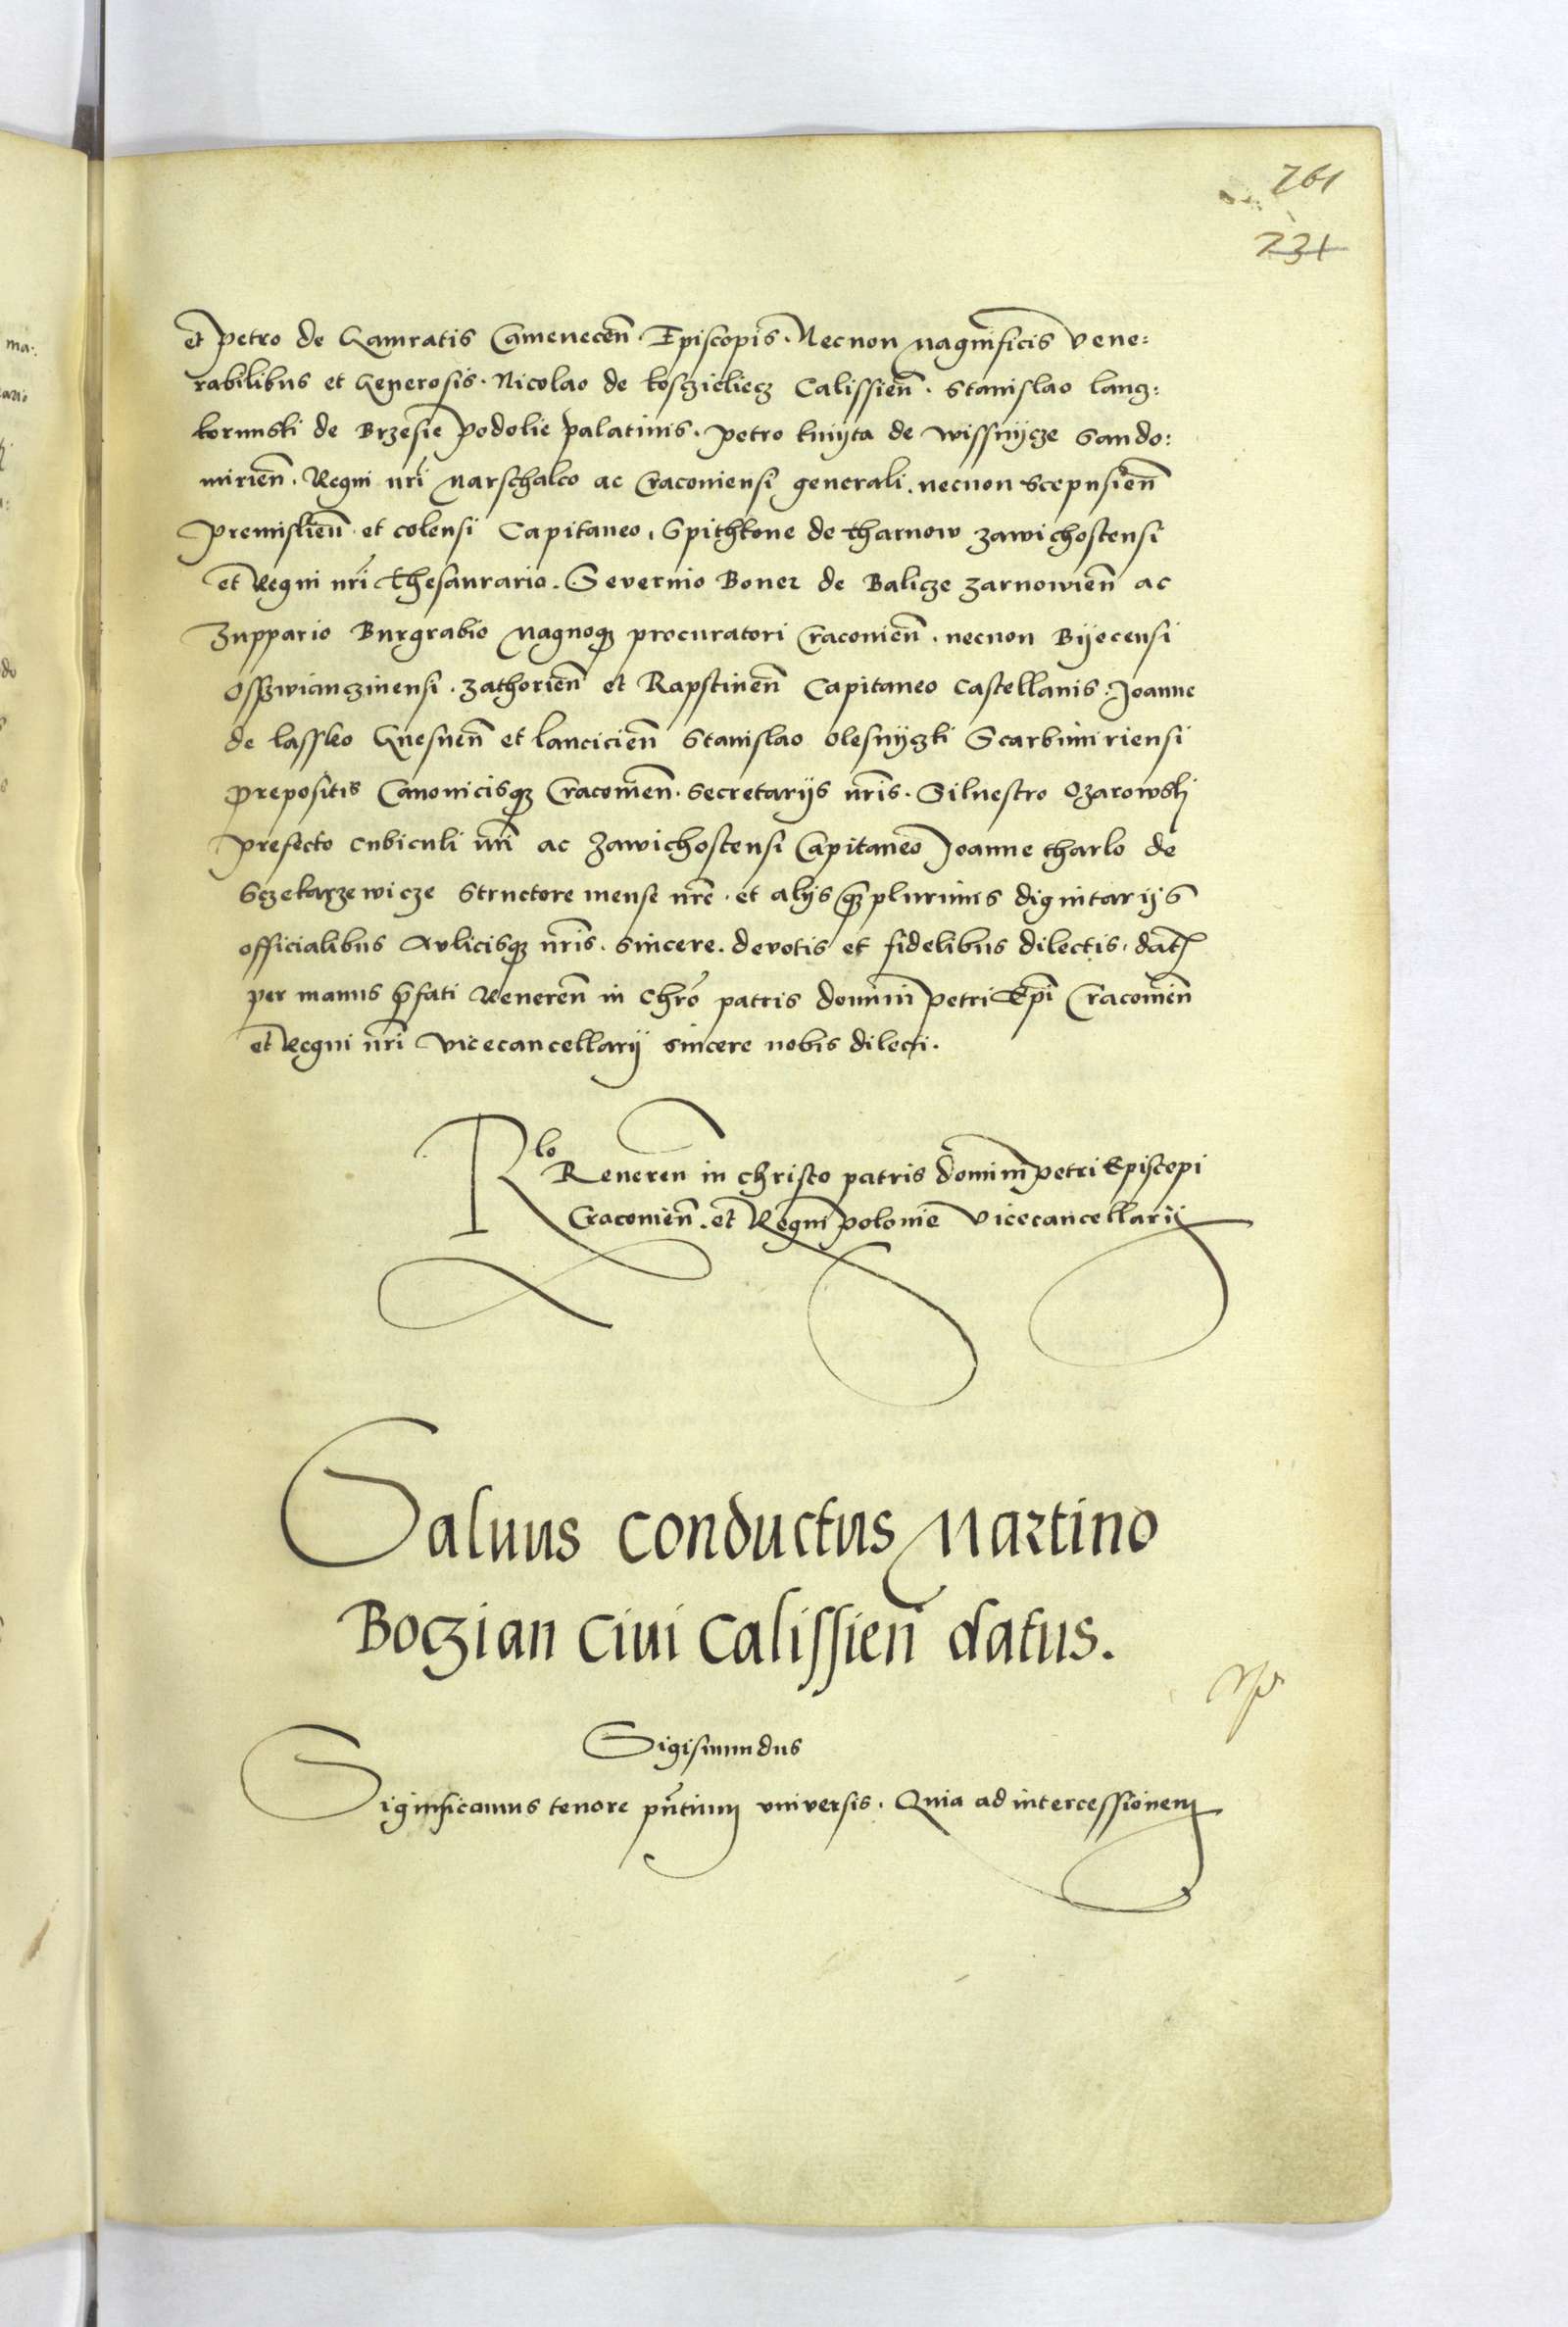 261
231
et Petro de Gamratis Camenecen̄. Episcopis. Necnon Magnificis Vene:
rabilibus et Generosis. Nicolao de Kosczieliecz Calissien̄. Stanislao Lancz:
korunski de Brzesie Podolie Palatinis. Petro Kmyta de Wissnycze Sando:
mirien̄. Regni nr̄i Marschalco ac Cracoviensi generali. necnon Scepusien̄
Premislien̄ et Colensi Capitaneo. Spithkone de Tharnow Zawichostensi
et Regni nr̄i Thesaurario. Severino Boner de Balicze Zarnowien̄ ac
Zuppario Burgrabio Magnoq3 procuratori Cracovien̄. necnon Byecensi
Osszwianczinensi. Zathorien̄ et Rapstinen̄ Capitaneo Castellanis. Joanne
de Lassko Gnesnen̄ et Lancicien̄ Stanislao Olesnyczki Scarbimiriensi
Prepositis Canonicisq3 Cracovien̄. Secretarijs nr̄is. Silvestro Ozarowski
Prefecto cubiculi nr̄i ac Zawichostensi Capitaneo Joanne Tharlo de
Sczekarzewicze Structore mense nr̄e. et alijs q3plurimis dignitarijs
officialibus Aulicisq3 nr̄is. sincere. devotis et fidelibus dilectis. dat̄
per manus p̄fati Reveren̄ in Chr̄o patris domini Petri Ep̄i Cracovien̄
et Regni nr̄i Vicecancellarij sincere nobis dilecti.
Rlo Reveren in Christo patris domini Petri Episcopi
Cracovien̄. et Regni Polonie Vicecancellarij
Saluus conductus Martino
Boczian Ciui Calissien̄ datus.
Sigismundus
Significamus tenore pn̄tium vniversis. Quia ad intercessionem